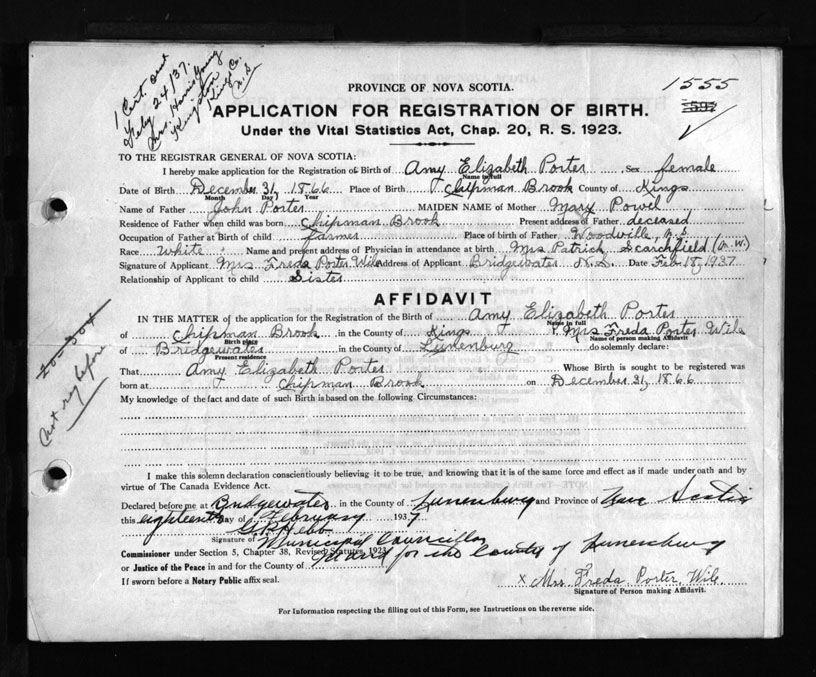 1 Cert. out
Feby 24/37.
Mrs. Harris Young
Kingston
Kings Co.
N.S.
1555
PROVINCE OF NOVA SCOTIA.
APPLICATION FOR REGISTRATION OF BIRTH.
Under the Vital Statistics Act, Chap. 20, R. S. 1923.
TO THE REGISTRAR GENERAL OF NOVA SCOTIA:
I hereby make application for the Registration of Birth of Amy Elizabeth Porter Sex female
Name in full
Date of Birth December 31, 1866 Place of Birth Chipman Brook County of Kings
Month Day) Year
Name of Father John Porter MAIDEN NAME of Mother Mary Powel
Residence of Father when child was born Chipman Brook Present address of Father deceased
Occupation of Father at Birth of child farmer Place of birth of Father Woodville, N.S.
Race White Name and present address of Physician in attendance at birth Mrs Patrick Scarchfield (M.W.)
Signature of Applicant Mrs Freda Porter Wile Address of Applicant Bridgewater N.S. Date Feb 18, 1937
Relationship of Applicant to child Sister
AFFIDAVIT
IN THE MATTER of the application for the Registration of the Birth of Amy Elizabeth Porter
Name in full
of Chipman Brook in the County of Kings I, Mrs Freda Porter Wile
Birth place Name of person making Affidavit
of Bridgewater in the County of Lunenburg do solemnly declare:
Present residence
That Amy Elizabeth Porter Whose Birth is sought to be registered was
born at Chipman Brook on December 31, 1866
My knowledge of the fact and date of such Birth is based on the following Circumstances:
20-304
Not reg before
I make this solemn declaration conscientiously believing it to be true, and knowing that it is of the same force and effect as if made under oath and by
virtue of The Canada Evidence Act.
Declared before me at Bridgewater in the County of Lunenburg and Province of Nova Scotia
this eighteenth day of February 1937
Signature of
Municipal Councillor
Commissioner under Section 5, Chapter 38, Revised Statutes, 1923
or Justice of the Peace in and for the County of in and for the County of Lunenburg
If sworn before a Notary Public affix seal.
x Mrs Freda Porter Wile
Signature of Person making Affidavit.
For Information respecting the filling out of this Form, see Instructions on the reverse side.